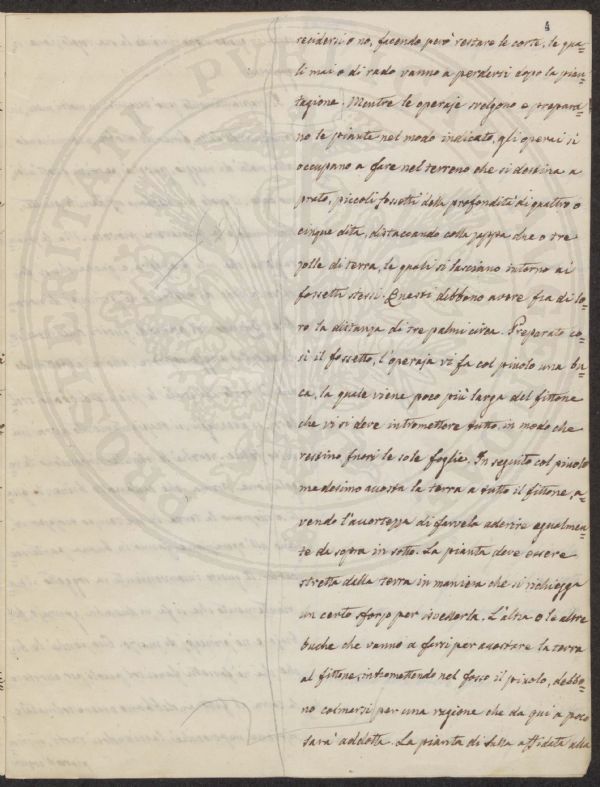 4
recidersi o no, facendo però restare le corte, le qua=
li mai o di rado vanno a perdersi dopo la pian=
tagione. Mentre le operaje svelgono e prepara=
no le piante nel modo indicato, gli operai si
occupano a fare nel terreno che si destina a
prato, piccoli fossetti della profondità di quattro o
cinque dita, distaccando colla zappa due o tre
zolle di terra, le quali si lasciano intorno ai
fossetti stessi. Questi debbono avere fra di lo=
ro la distanza di tre palmi circa. Preparato co=
sì il fossetto, l'operaja vi fa col piuolo una bu=
ca, la quale viene poco più larga del fittone
che vi si deve intromettere tutto, in modo che
restino fuori le sole foglie. In seguito col piuolo
medesimo accosta la terra a tutto il fittone, a=
vendo l'accortezza di farvela aderire egualmen=
te da sopra in sotto. La pianta deve essere
stretta dalla terra in maniera che si richiegga
un certo sforzo per isvellerla. L'altra o le altre
buche che vanno a farsi per accostare la terra
al fittone, intromettendo nel fosso il piuolo, debbo=
no colmarsi per una ragione che da qui a poco
sarà addotta. La pianta di Sulla affidata alla